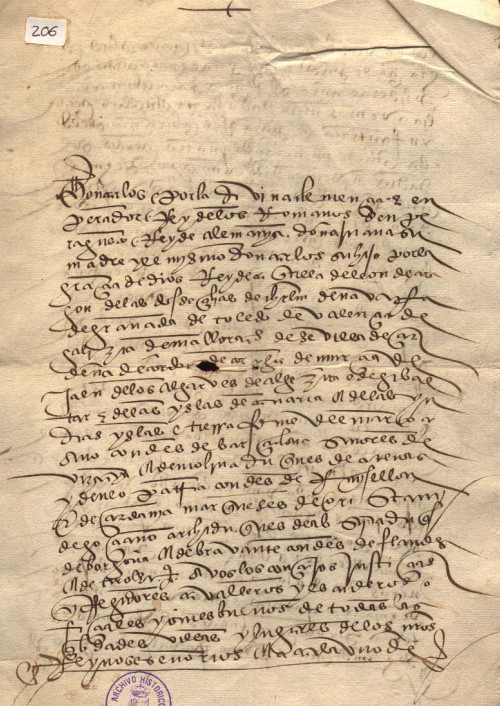 206
Don carlos por la divina clemençia en
perador Rey de los Romanos sen per
agusto Rey de alemanya. doña juana su
madre y el mysmo don carlos su hijo por la
graçia de dios Reyes castilla de leon de ara
gon de las dos seçilias de jhrlm de navarra
de granada de toledo de valençia de
galizia de mallorcas de sevilla de çer
deña de cordova de corçega de murçia de
jaen de los algarves de algezira de gibal
tar de las yslas de canaria de las yn
dias yslas e tierra firme del mar oçea
no condes de barçelona señores de
vizcaya de molina duques de atenas
y de neopatria condes de Ruysellon
de çerdania marqueses de oristan y
de goçiano archiduques de abstria duques
de borgoña de bravante condes de flandes
de tirol a vos los conçejos justiçias
Regidores cavalleros escuderos o
fiçiales y omes buenos de todas las
çibdades villas y lugares de los nuestros
Reynos e señorios a cada uno de
ARCHIVO HISTORICO